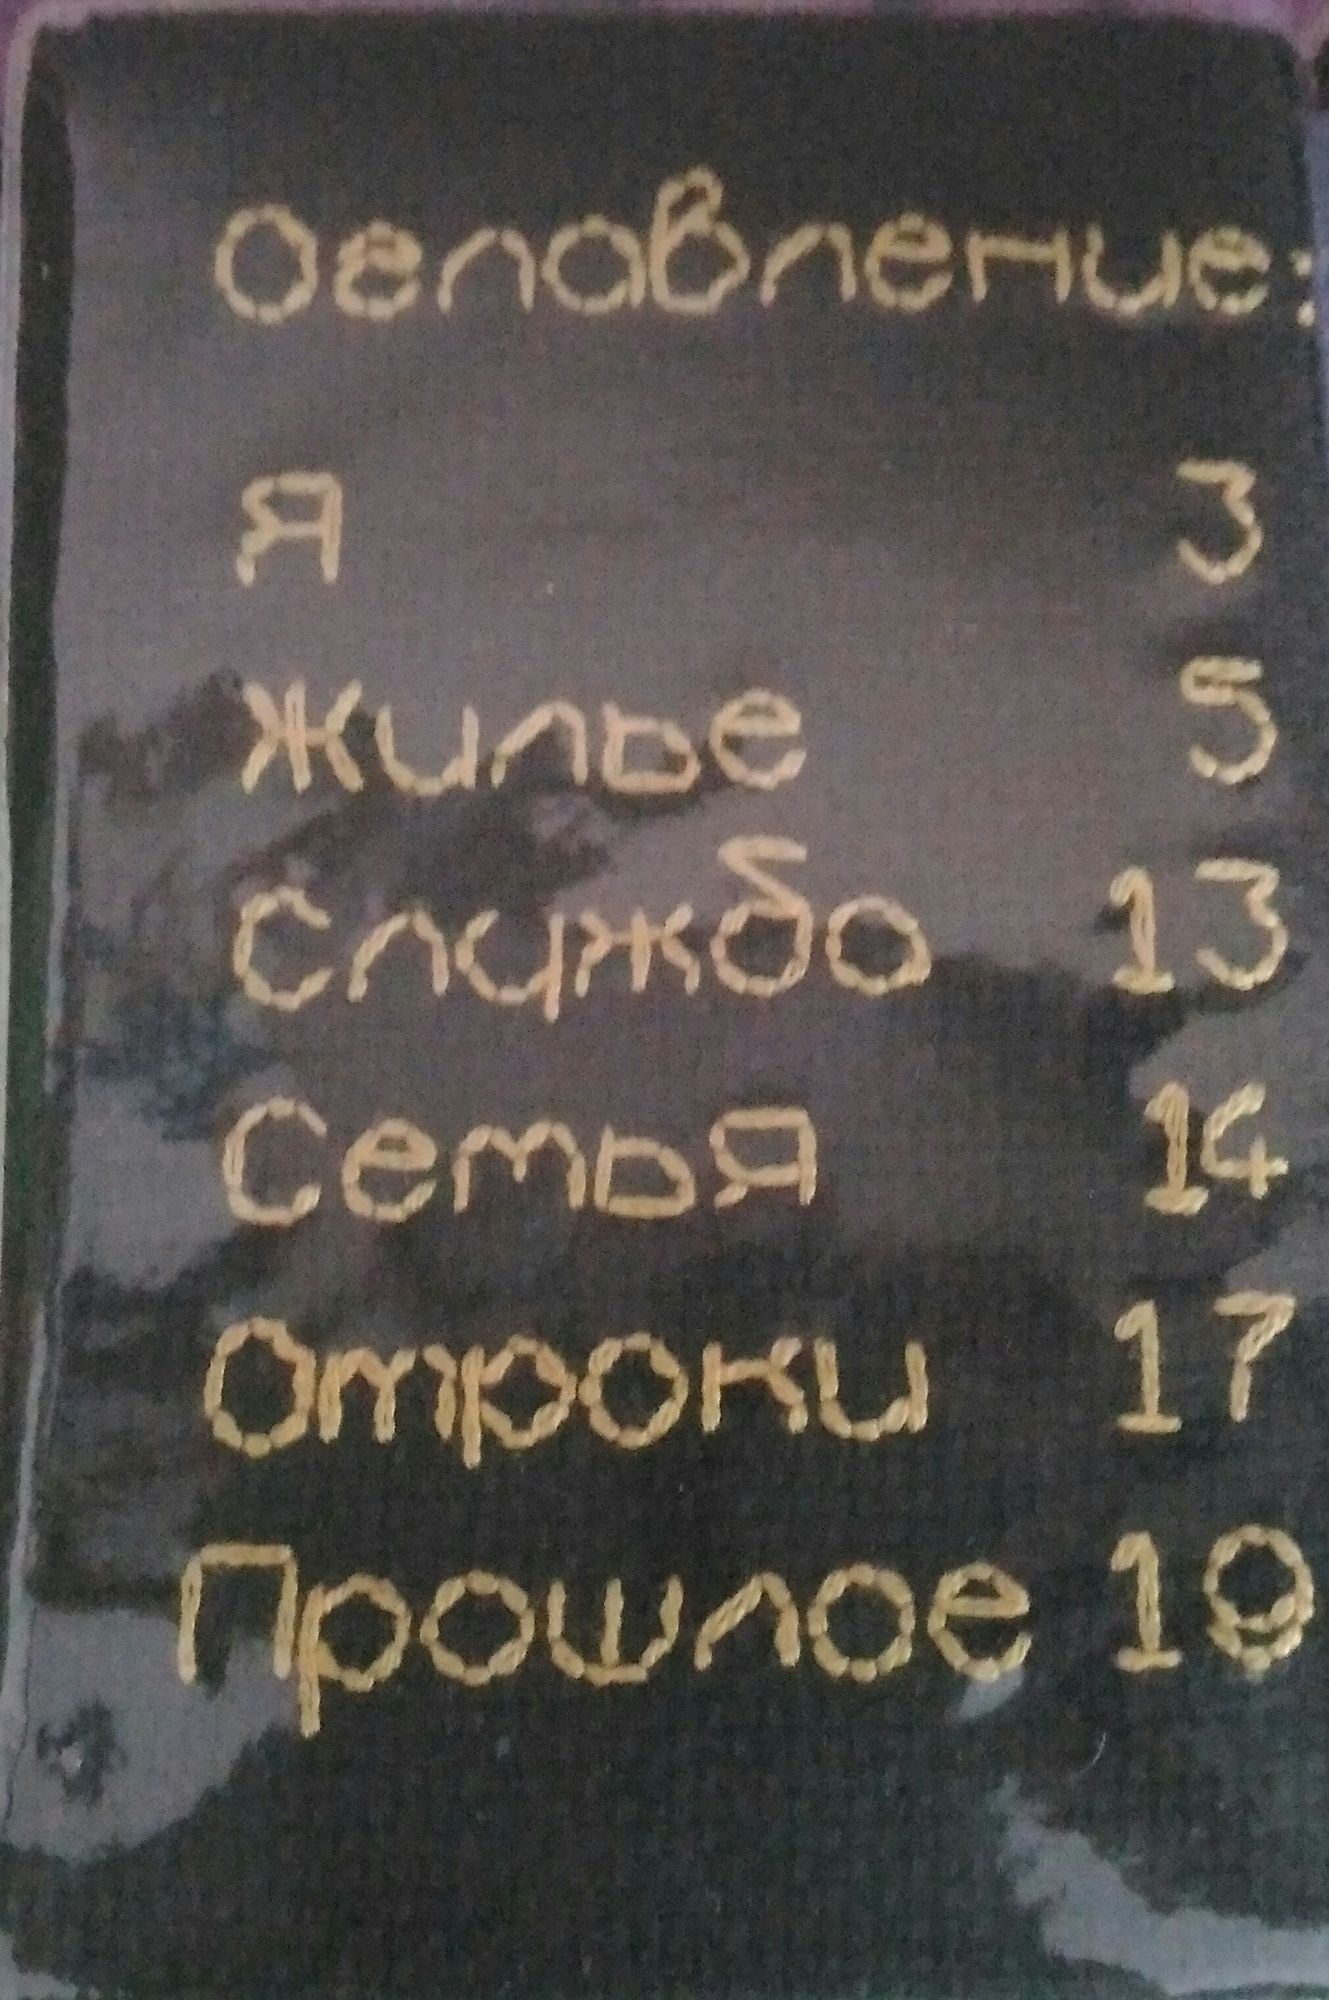 Оглавление:
Я 3
Жилье 5
Службо 13
Семья 14
Отроки 17
Прошлое 19